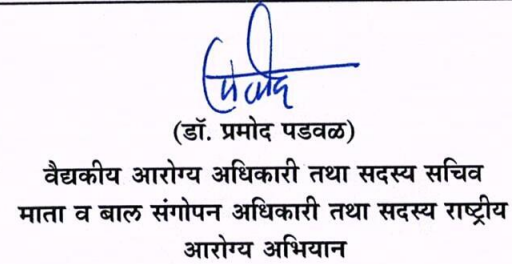 प्रमोद
(डॉ. प्रमोद पडवळ)
वैद्यकीय आरोग्य अधिकारी तथा सदस्य सचिव
माता व बाल संगोपन अधिकारी तथा सदस्य राष्ट्रीय
आरोग्य अभियान